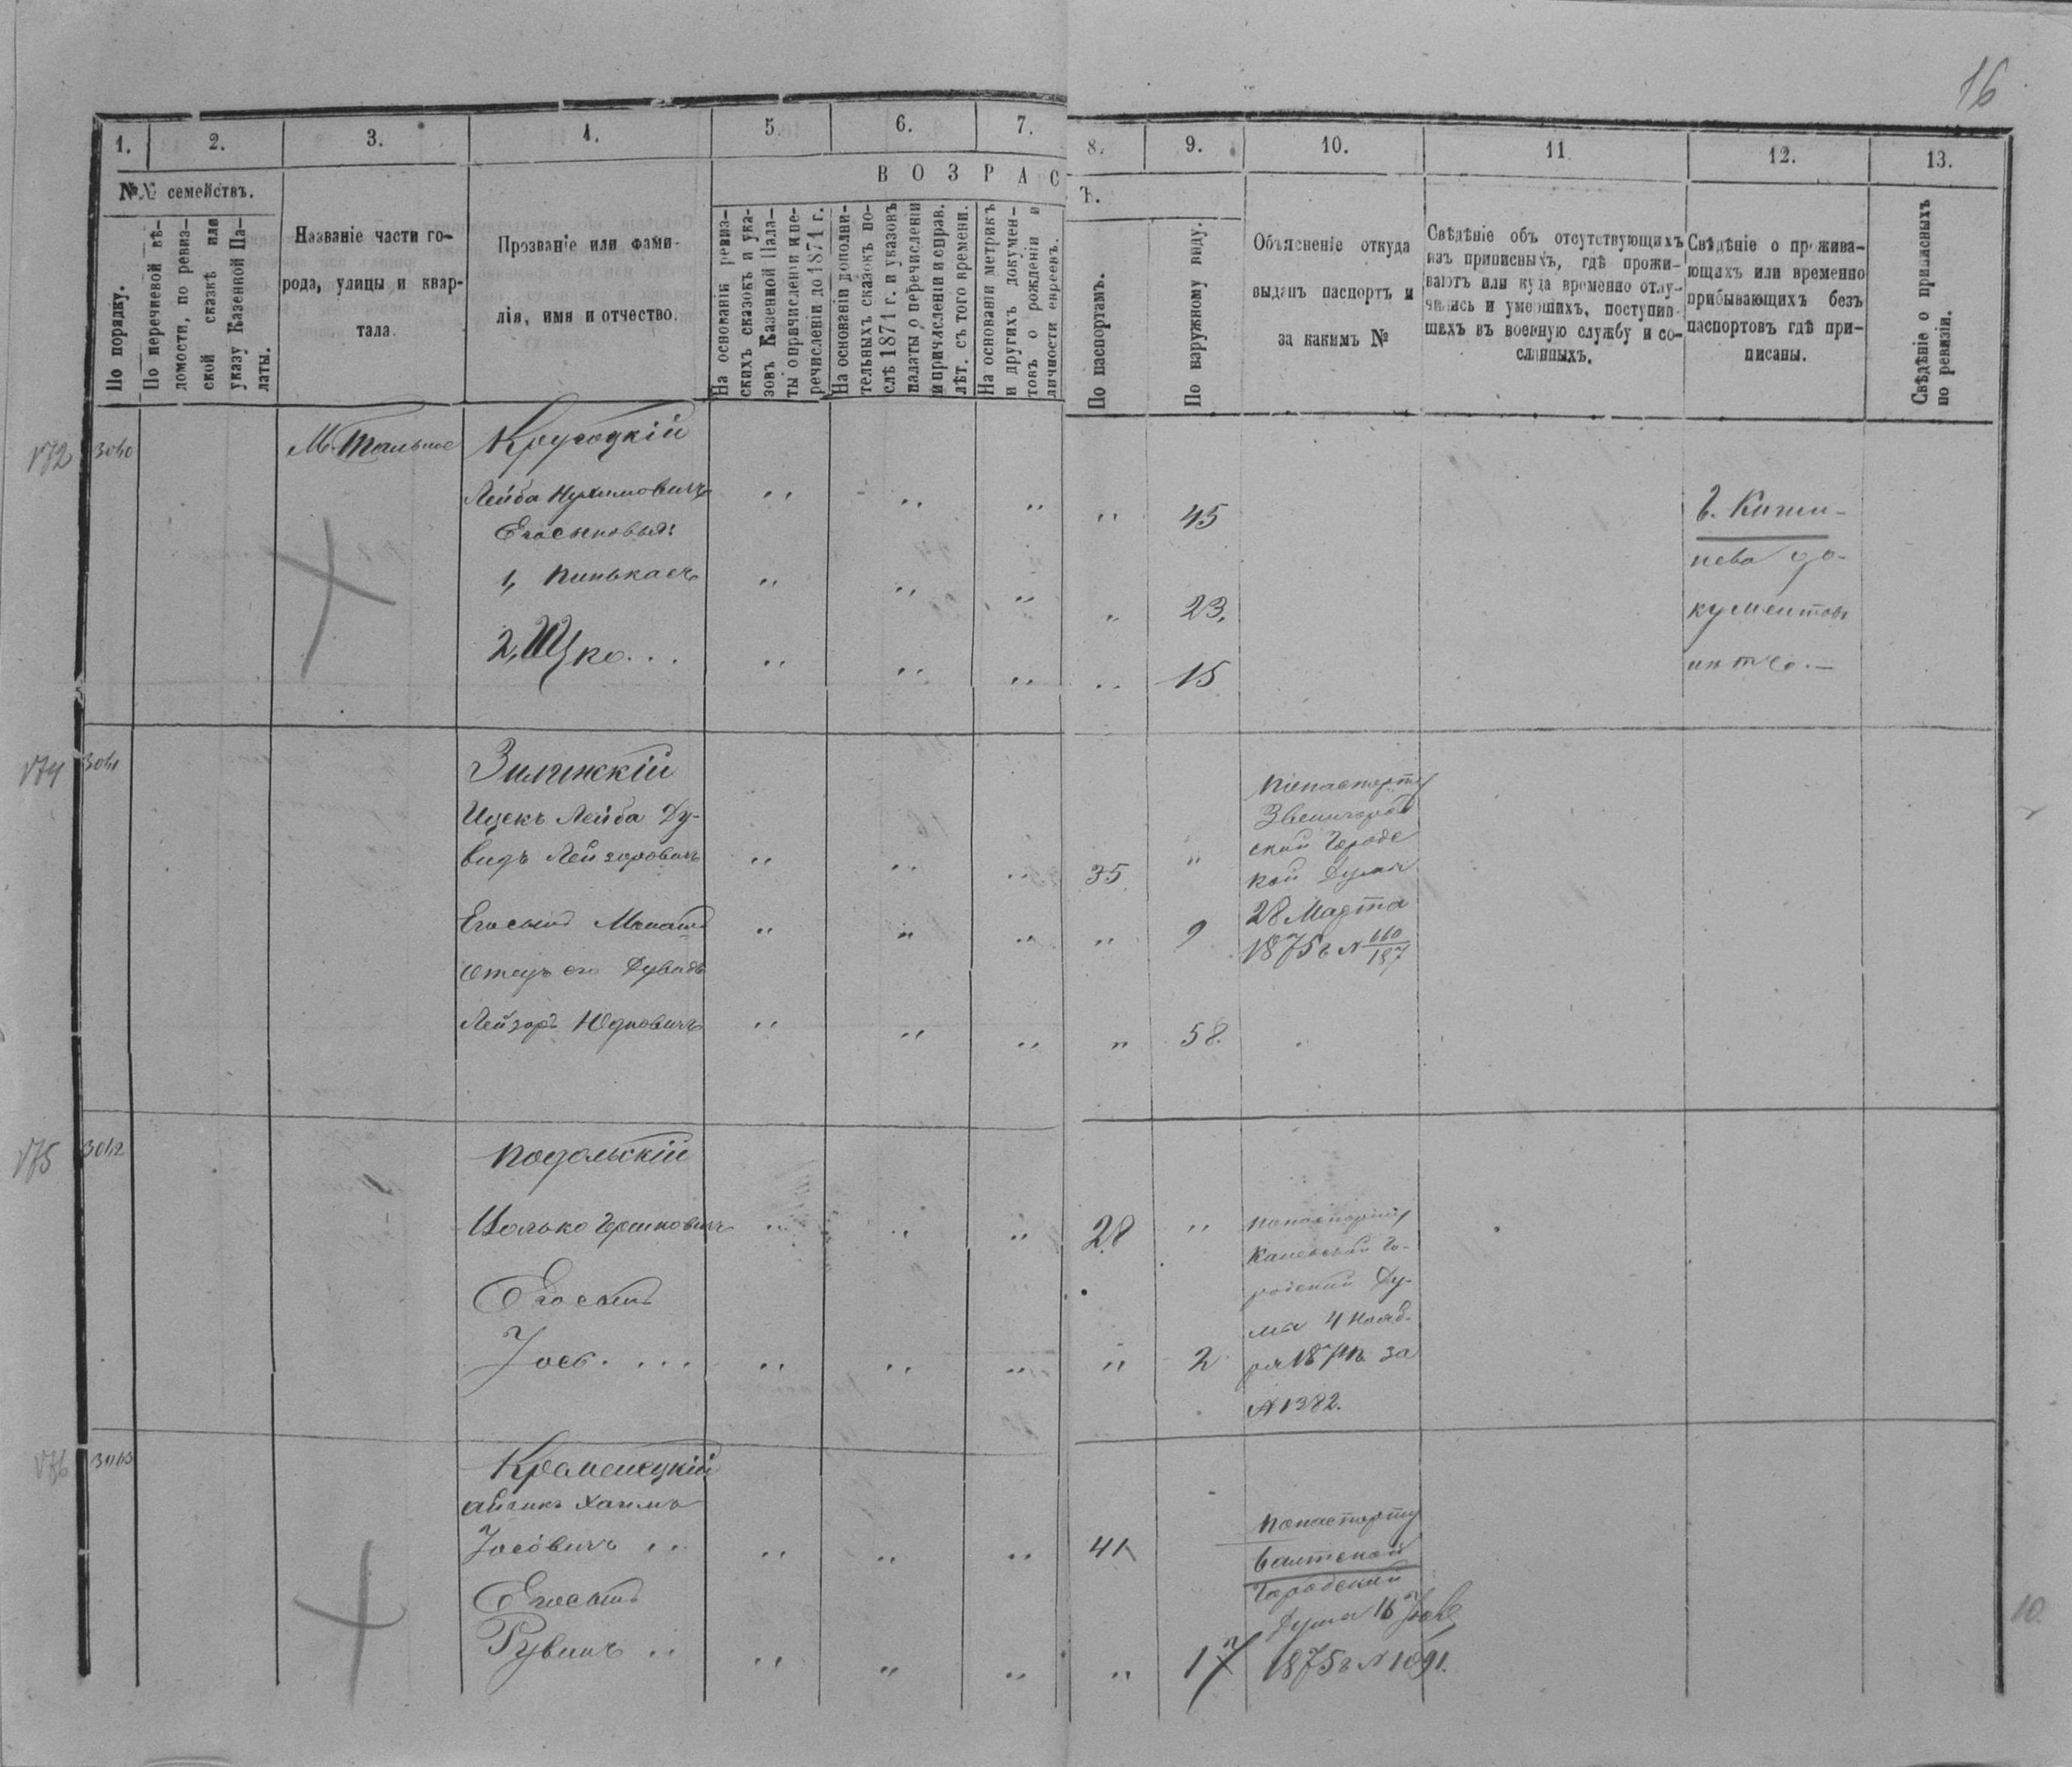 16
1. 2. 3. 4. 5. 6. 7. 8. 9. 10. 11 12. 13.
№№ семействъ.
По порядку.
По перечневой вѣ-
домости, по ревиз-
ской сказкѣ или
указу Казенной Па-
латы.
Названіе части го-
рода, улицы и квар-
тала.
Прозваніе или фами-
лія, имя и отчество.
ВОЗРАСТЪ.
На основаніи ревиз-
скихъ сказокъ и ука-
зовъ Казенной Пала-
ты о причисленіи и пе-
речисленіи до 1871 г.
На основаніи дополни-
тельныхъ сказокъ по-
слѣ 1871 г. и указовъ
палаты о перечисленіи
и причисленіи и справ.
лѣт. съ того времени.
На основаніи метрикъ
и другихъ докумен-
товъ о рожденіи и
личности евреевъ.
По паспортамъ.
По наружному виду.
Объясненіе откуда
выданъ паспортъ и
за какимъ №
Свѣдѣніе объ отсутствующихъ
изъ приписныхъ, гдѣ прожи-
ваютъ или куда временно отлу-
чились и умершихъ, поступив-
шихъ въ военную службу и со-
сланныхъ.
Свѣдѣніе о прожива-
ющихъ или временно
прибывающихъ безъ
паспортовъ гдѣ при-
писаны.
Свѣдѣніе о приписныхъ
по ревизіи.
172 3040 М. Тальное
Кругодкій
Лейба Нухимовичъ " " " " 45
Его сыновья:
1, Пинькасъ " " " " 23.
2, Ицко... " " " " 15
г. Киши-
нева до-
кументовъ
нѣтъ. –
174 3041
Зилинскій
Ицекъ Лейба Ду-
видъ Лейзоровичъ " " " 35 "
Его сынъ " " " " 9
Отецъ его Дувидъ
Лейзоръ Юдковичъ " " " " 58.
По паспорту
Звенигород
ской Городс
кой Думы
28 Марта
1875 г №
175 3042
Подольскій
Иолько Гершковичъ " " " 28 "
Его сынъ
Іось.... " " " " 2
По паспорту
Каневской Го-
родской Ду-
мы 4 Нояб.
ря 1874 г. за
№ 1382.
176 3043
Кременецкій
Айзикъ Хаимъ
Іосевичъ .. " " " 41
Его сынъ
Рувинъ .. " " " " 17
По паспорту
Балтской
Городской
Думы 16
1875 г № 1091.
10.